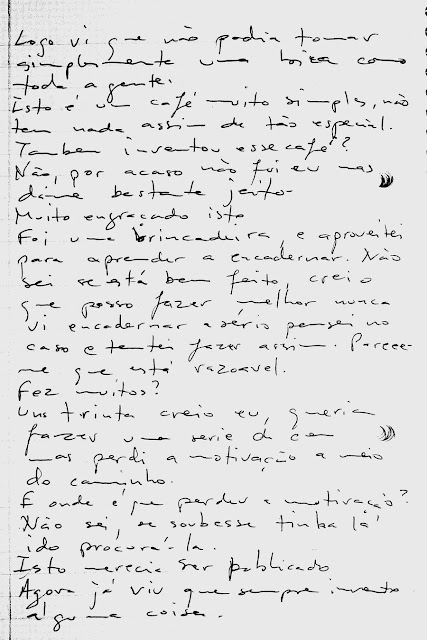 Logo vi que não podia tomar
simplesmente uma bica como
toda a gente.
Isto é um café muito simples, não
tem nada assim de tão especial.
Tambem inventou esse café?
Não, por acaso não fui eu mas
dá-me bastante jeito.
Muito engraçado isto
Foi uma brincadeira, e aproveitei
para aprender a encadernar. Não
sei se está bem feito, creio
que posso fazer melhor nunca
vi encadernar a sério pensei no
caso e tentei fazer assim. Parece-
me que está razoavel.
Fez muitos?
Uns trinta creio eu, queria
fazer uma serie de cem
mas perdi a motivação a meio
do caminho.
E onde é que perdeu a motivação?
Não sei, se soubesse tinha lá
ido procurá-la.
Isto merecia ser publicado
Agora já viu que sempre invento
alguma coisa.